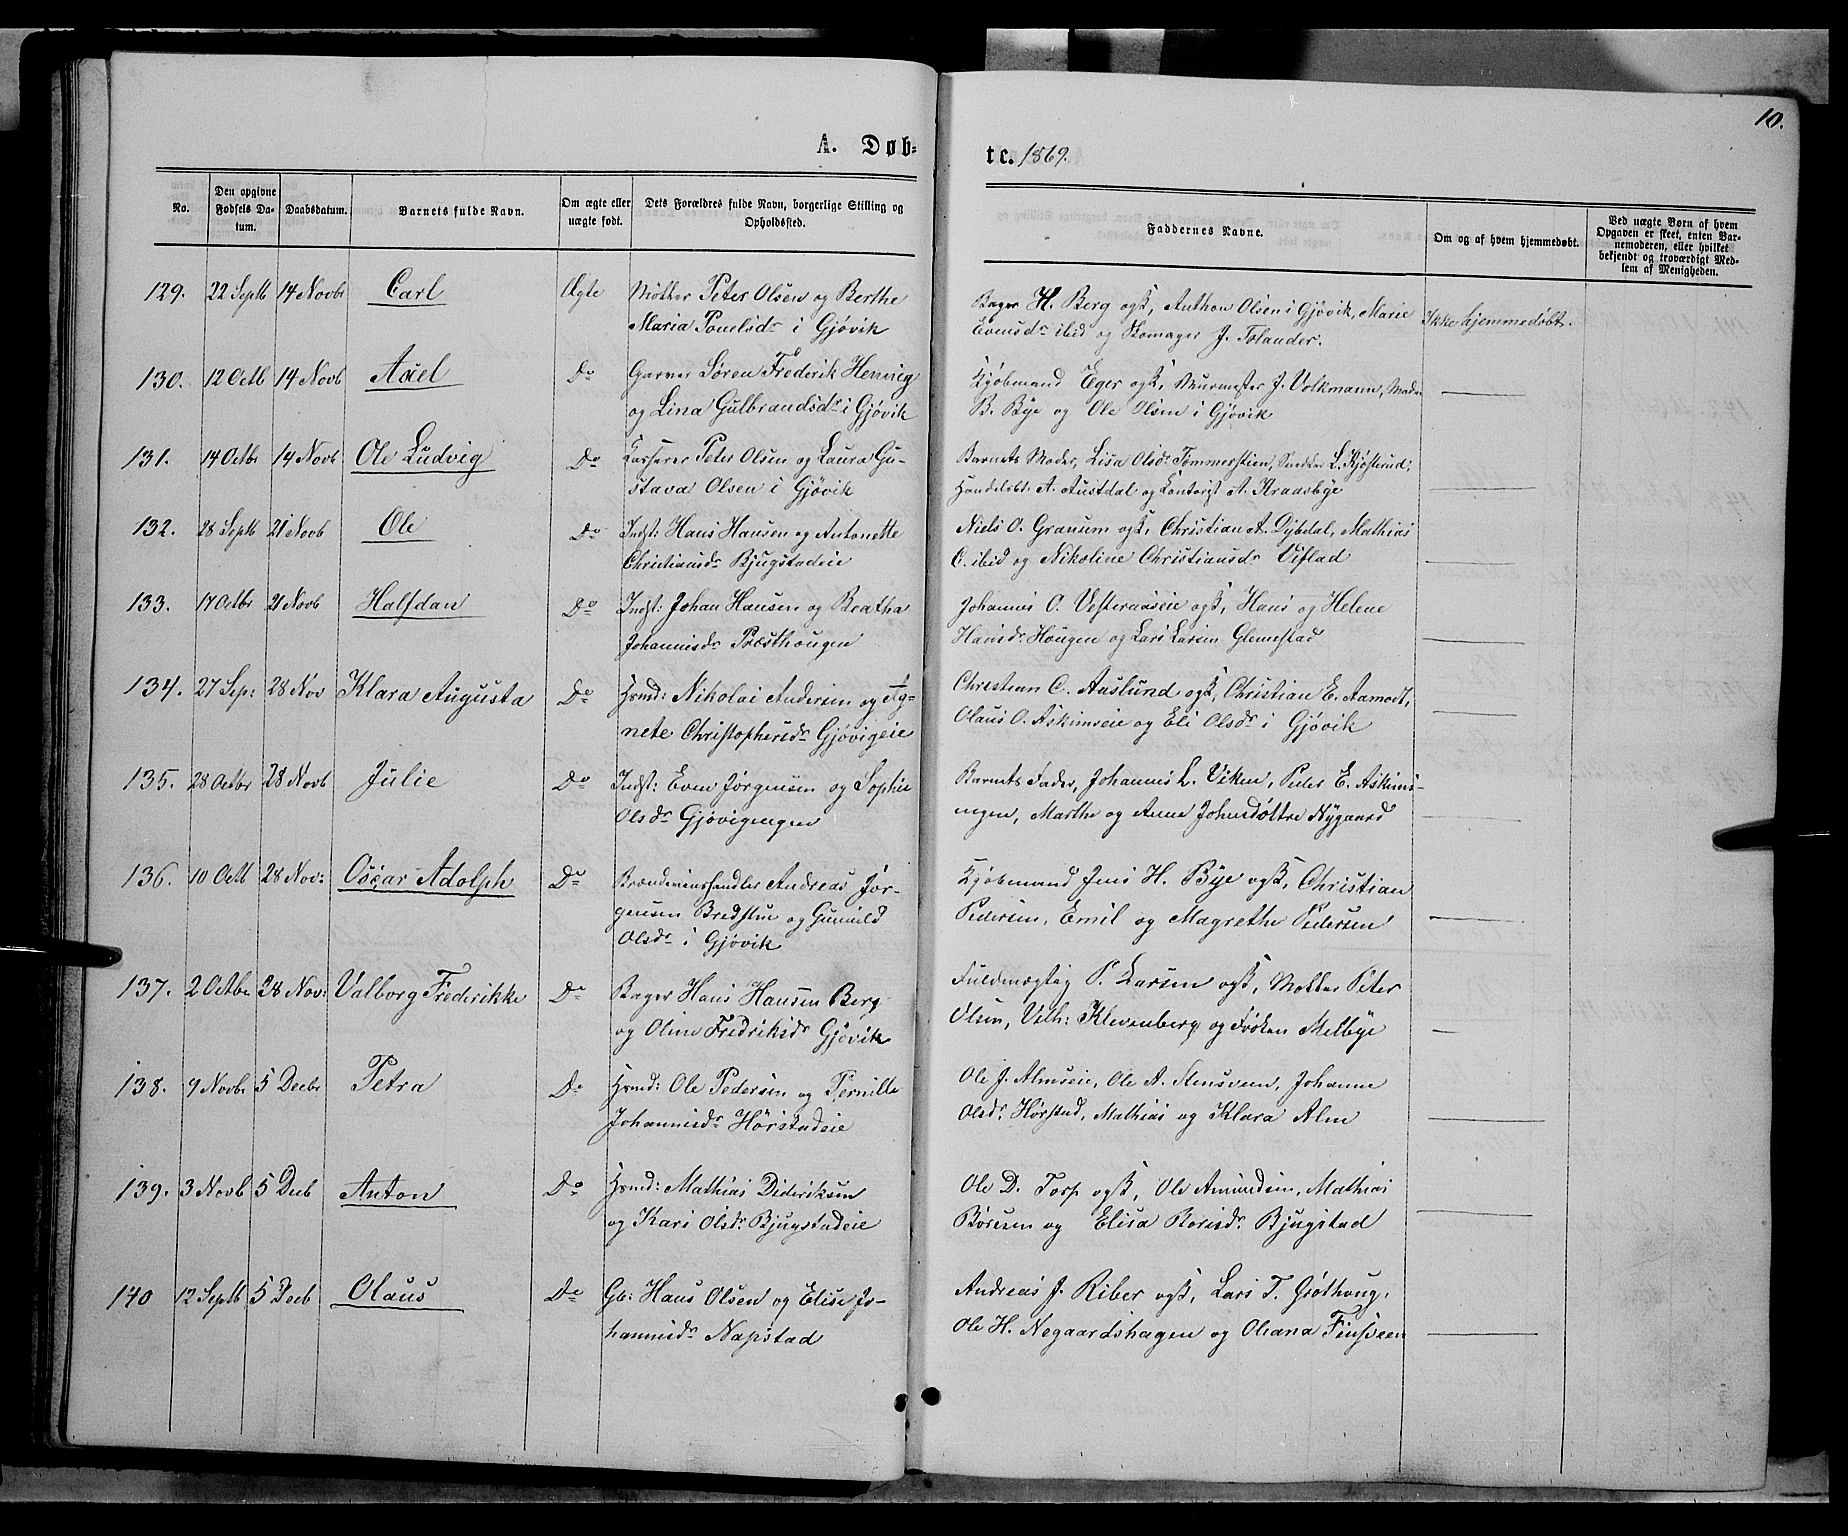 10.
A. Døb-
te. 1869.
No.
Den opgivne
Fødsels Da-
tum.
Daabsdatum.
Barnets fulde Navn.
Om ægte eller
uægte født.
Dets Forældres fulde Navn, borgerlige Stilling og
Opholdssted.
Faddernes Navne.
Om og af hvem hjemmedøbt.
Ved uægte Børn af hvem
Opgaven er skeet, enten Bar-
nemoderen, eller hvilket
bekjendt og troværdigt Med-
lem af Menigheden.
129. 22 Septb 14 Novbr Carl Ægte Møller Peter Olsen og Berthe
Maria Poulsdr i Gjøvik
Bager H. Berg ogs, Anthon Olsen i Gjøvik, Marie
Evensdr ibid og Skomager J. Tolander.
Ikke hjemmedøbt.
130. 12 Octb 14 Novb Axel Do Garver Søren Frederik Hennig
og Lina Gulbrandsdr i Gjøvik
Kjøbmand Eger ogs, Muurmester J. Volkmann, Mad
B. Bye og Ole Olsen i Gjøvik
131. 14 Octbr 14 Novb Ole Ludvig Do Peter Olsen og Laura Gu-
stava Olsen i Gjøvik
Barnets Moder, Lisa Olsdr Tommerstien, Snedker L. Kjøsterud,
Handelsbt. A. Austdal og Contorist A. Kraabye
132. 28 Septb 21 Novb Ole Do Indst: Hans Hansen og Antonette
Christiansdr Bjugstadeie
Niels O. Granum ogs, Christian A. Dybdal, Mathias
C. ibid og Nikoline Christiansdr Viflad
133. 17 Octbr 21 Novb Halfdan Do Indst: Johan Hansen og Bratha
Johannisdr Præsthougen
Johannes O. Vesteraaseie ogs, Hans og Helene
Hansdr Hougen og Lars Larsen Glemestad
134. 27 Sep: 28 Nov Klara Augusta Do Hsmd: Nikolai Andersen og Ag-
nete Christophersdr Gjøvigeie
Christian C. Aaslund ogs, Christian E. Aamodt,
Olaus O. Askimseie og Eli Olsdr i Gjøvik
135. 28 Octbr 28 Novb Julie Do Indst: Even Jørgensen og Sophie
Olsdr Gjøvigengen
Barnets Fader, Johannes L. Viken, Peder E. Askims-
engen, Marthe og Anne Johnsdøttre Nygaard
136. 10 Octb 28 Nov: Oscar Adolph Do Brændeviinshandler Andreas Jør-
gensen Bredstue og Gunild
Olsdr i Gjøvik
Kjøbmand Jens H. Bye ogs, Christian
Pedersen, Emil og Magrethe Pedersen
137. 2 Octbr 28 Nov: Valborg Frederikke Do Bager Hans Hansen Berg
og Oline Fredriksdr Gjøvik
Fuldmægtig P. Larsen ogs, Møller Peter
Olsen, Vilh: Klevenberg og Frøken Melbye
138. 9 Novbr 5 Decbr Petra Do Hsmd: Ole Pedersen og Pernille
Johannisdr Hørstadeie
Ole J. Almseie, Ole A. Stensveen, Johanne
Olsdr Hørstad, Mathias og Klara Alm
139. 3 Novb 5 Decb Anton Do Hsmd: Mathias Dideriksen
og Kari Olsdr Bjugstadeie
Ole D. Torp ogs, Ole Amundsen, Mathias
Børesen og Elisa Borisdr Bjugstad
140 12 Septb 5 Decb Olaus Do Gb: Hans Olsen og Elise Jo-
hannisdr Napstad
Andreas J. Riber ogs, Lars T. Grøthoug,
Ole H. Negaardshagen og Oliana Finsveen